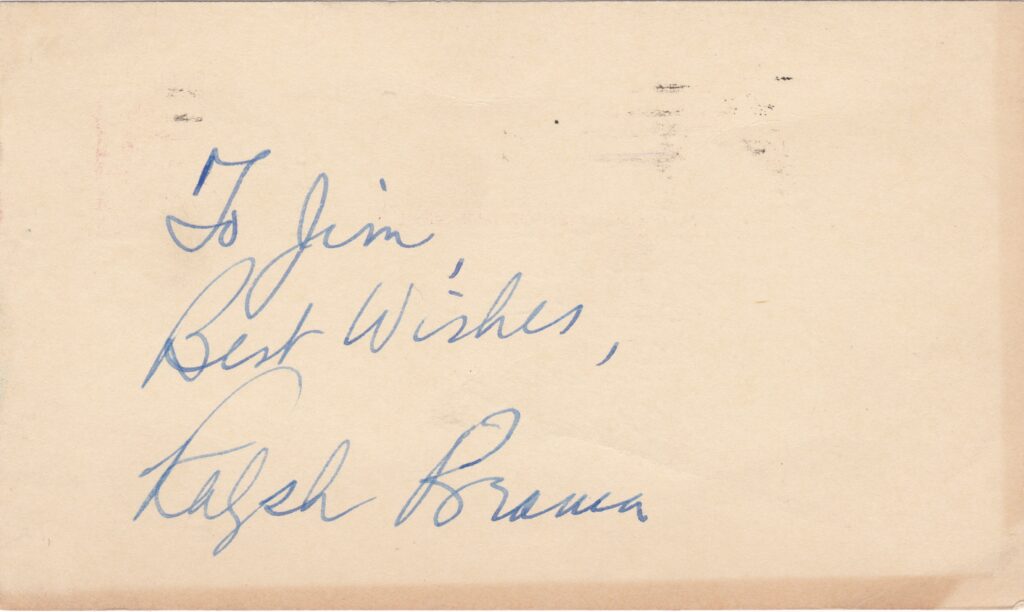 To Jim,
Best Wishes,
Ralph Branca